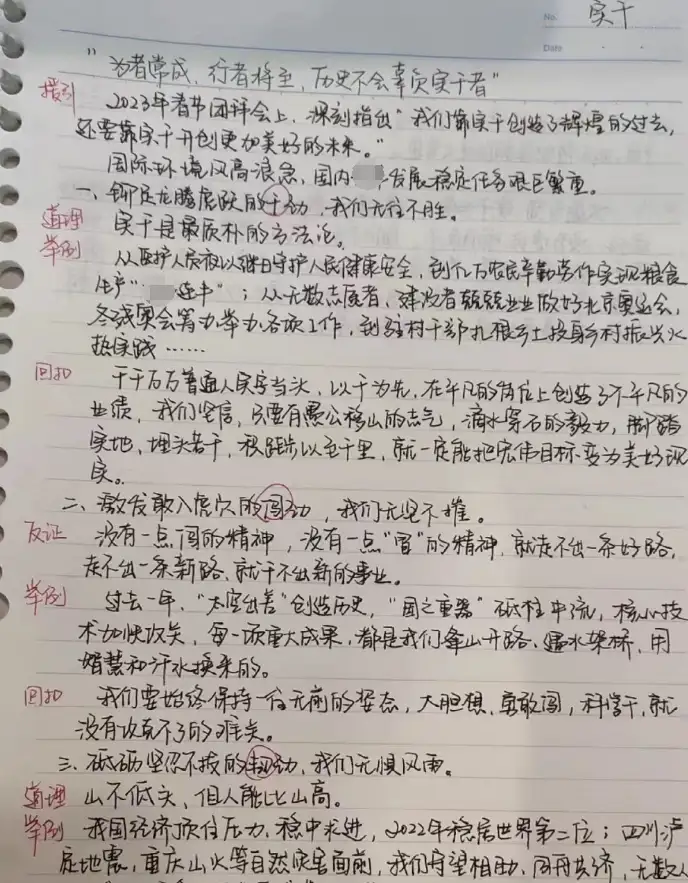 No. 实干
Date
"为者常成,行者将至,历史不会辜负实干者"
援引 2023年春节团拜会上,深刻指出"我们靠实干创造了辉煌的过去,
还要靠实干开创更加美好的未来。"
国际环境风高浪急,国内 发展稳定任务艰巨繁重。
一、铆足龙腾虎跃的干劲,我们无往不胜。
道理 实干是最质朴的方法论。
举例 从医护人员夜以继日守护人民健康安全,到亿万农民辛勤劳作实现粮食
生产" 连丰";从无数志愿者、建设者兢兢业业做好北京奥运会、
冬残奥会筹办举办各项工作,到驻村干部扎根乡土投身乡村振兴火
热实践……
回扣 千千万万普通人实字当头,以干为先,在平凡的岗位上创造了不平凡的
业绩,我们坚信,只要有愚公移山的志气,滴水穿石的毅力,脚踏
实地,埋头苦干,积跬步以至千里,就一定能把宏伟目标变为美好现
实。
二、激发敢入虎穴的闯劲,我们无坚不摧。
反证 没有一点闯的精神,没有一点"冒"的精神,就走不出一条好路,
走不出一条新路、就干不出新的事业。
举例 过去一年,"太空出差"创造历史,"国之重器"砥柱中流,核心技
术加快攻关,每一项重大成果,都是我们逢山开路、遇水架桥,用
智慧和汗水换来的。
回扣 我们要始终保持一往无前的姿态,大胆想、勇敢闯,科学干,就
没有攻克不了的难关。
三、砥砺坚忍不拔的韧劲,我们无惧风雨。
道理 山不低头,但人能比山高。
举例 我国经济顶住压力、稳中求进,2022年稳居世界第二位;四川泸
定地震,重庆山火等自然灾害面前,我们守望相助、同舟共济,无数人